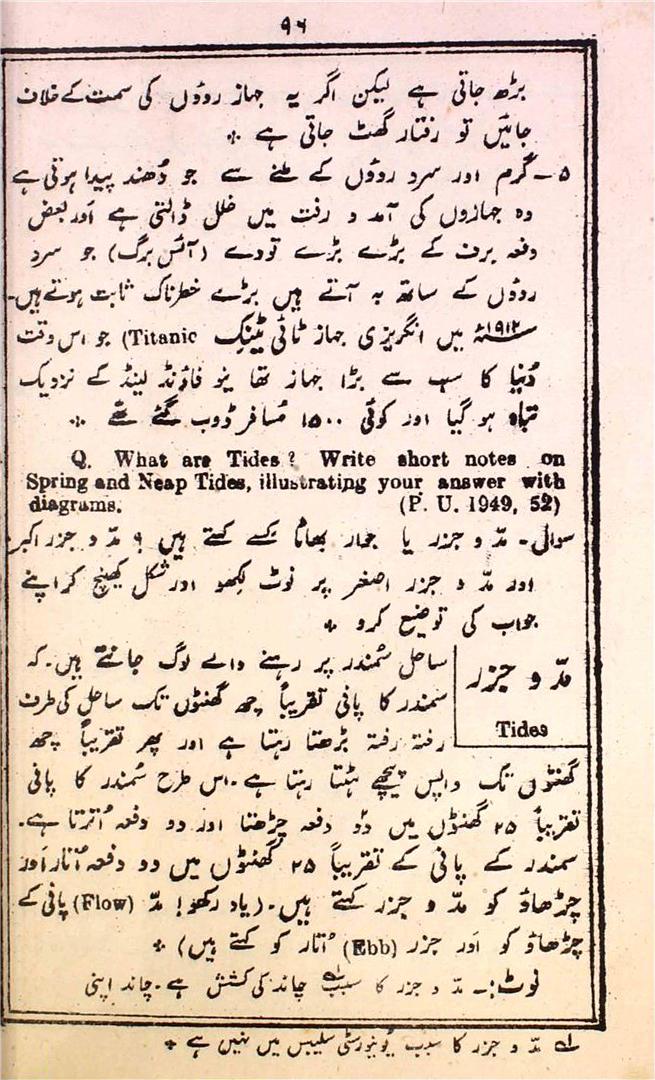 ۹۶
بڑھ جاتی ہے لیکن اگر یہ جہاز روؤں کی سمت کے خلاف
جائیں تو رفتار گھٹ جاتی ہے *
۵۔ گرم اور سرد روؤں کے ملنے سے جو دُھند پیدا ہوتی ہے
وہ جہازوں کی آمد و رفت میں خلل ڈالتی ہے اَور بعض
دفعہ برف کے بڑے بڑے تودے (آئس برگ) جو سرد
روؤں کے ساتھ بہ آتے ہیں بڑے خطرناک ثابت ہوتے ہیں۔
۱۹۱۲ء میں انگریزی جہاز ٹائی ٹینِک (Titanic) جو اس وقت
دُنیا کا سب سے بڑا جہاز تھا نیو فاؤنڈ لینڈ کے نزدیک
تباہ ہو گیا اور کوئی ۱۵۰۰ مُسافر ڈوب گئے تھے *
Q. What are Tides? Write short notes on
Spring and Neap Tides, illustrating your answer with
diagrams. (P. U. 1949, 52)
سوال۔ مدّ و جزر یا جوار بھاٹا کسے کہتے ہیں ؟ مدّ و جزر اکبر
اور مدّ و جزر اصغر پر نوٹ لکھو اور شکل کھینچ کر اپنے
جواب کی توضیح کرو *
مدّ و جزر
Tides
ساحل سُمندر پر رہنے والے لوگ جانتے ہیں۔ کہ
سمندر کا پانی تقریباً چھ گھنٹوں تک ساحل کی طرف
رفتہ رفتہ بڑھتا رہتا ہے اور پھر تقریباً چھ
گھنٹوں تک واپس پیچھے ہٹتا رہتا ہے۔ اس طرح سُمندر کا پانی
تقریباً ۲۵ گھنٹوں میں دو دفعہ چڑھتا اور دو دفعہ اُترتا ہے۔
سمندر کے پانی کے تقریباً ۲۵ گھنٹوں میں دو دفعہ اُتار اَور
چڑھاؤ کو مدّ و جزر کہتے ہیں۔ (یاد رکھو! مدّ (Flow) پانی کے
چڑھاؤ کو اَور جزر (Ebb) اُتار کو کہتے ہیں) *
نوٹ:۔ مدّ و جزر کا سبب؂۱ چاند کی کشش ہے۔ چاند اپنی
؂۱ مدّ و جزر کا سبب یُونیورسٹی سلیبس میں نہیں ہے *